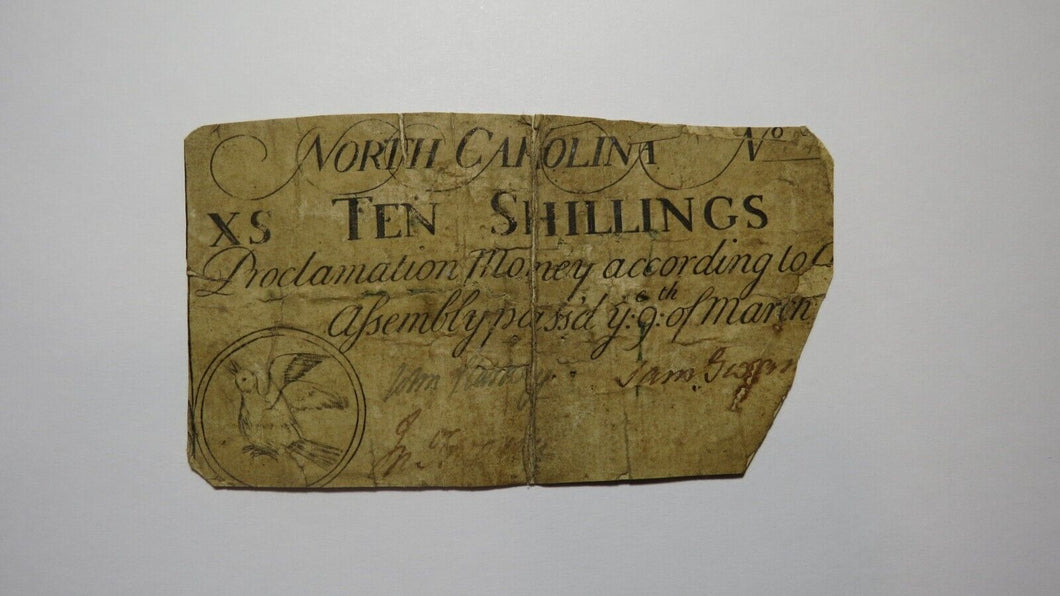 NORTH CAROLINA No
XS TEN SHILLINGS
Proclamation Money according to
Assembly pass'd y:9:th of March
Sam: